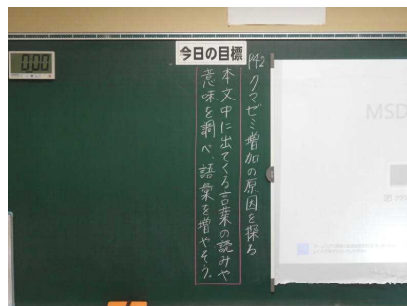 今日の目標
P42 クマゼミ増加の原因を探る
本文中に出てくる言葉の読みや
意味を調べ、語彙を増やそう。
0:00
MSD